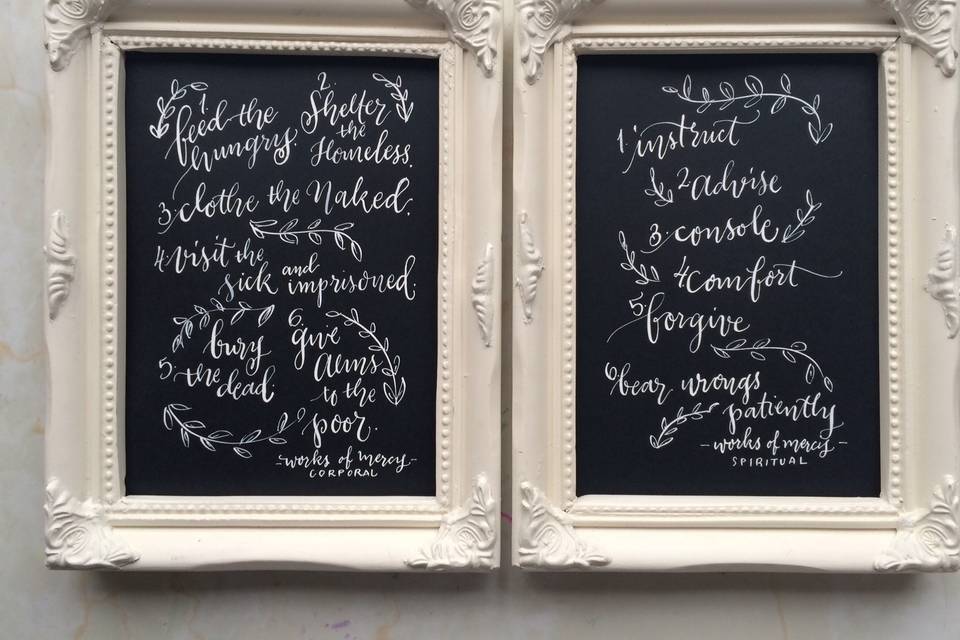 1. feed the
hungry.
2. Shelter
the
Homeless.
3. clothe the Naked.
4. visit the
sick and
imprisoned.
5. bury
the dead.
6. give
Alms
to the
poor.
-works of mercy-
CORPORAL
1. instruct
2 advise
3. console
4 comfort
5. forgive
6 bear wrongs
patiently
-works of mercy-
SPIRITUAL